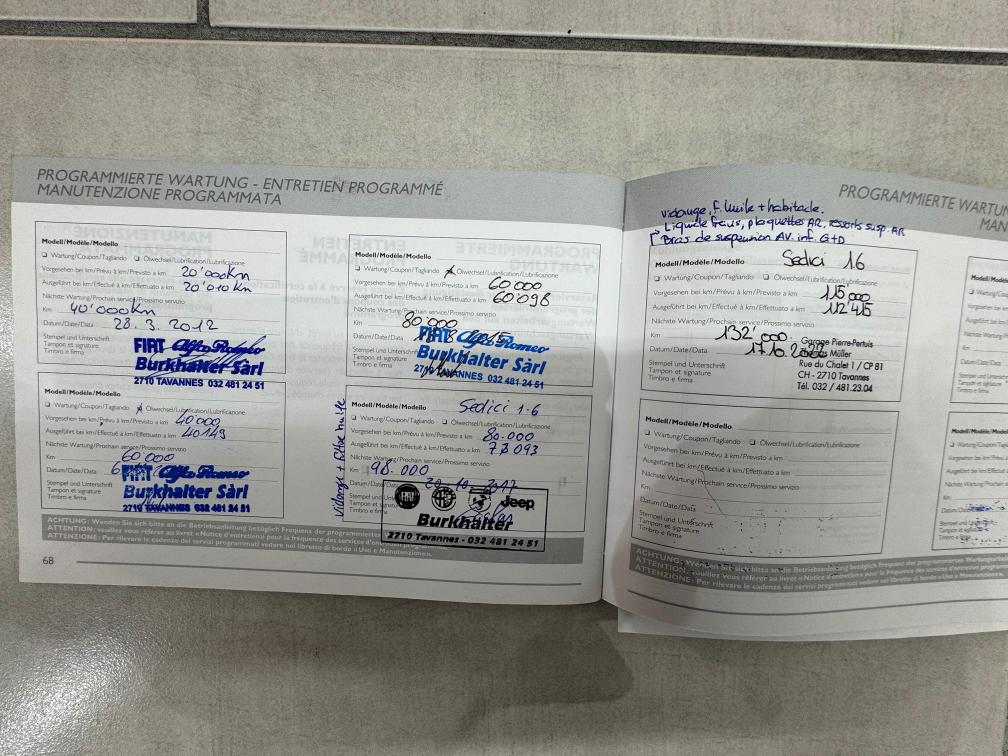 PROGRAMMIERTE WARTUNG - ENTRETIEN PROGRAMMÉ
MANUTENZIONE PROGRAMMATA
Modell/Modèle/Modello
❑ Wartung/Coupon/Tagliando ❑ Ölwechsel/Lubrification/Lubrificazione
Vorgesehen bei km/Prévu à km/Previsto a km 20'000km
Ausgeführt bei km/Effectué à km/Effettuato a km 20'010 km
Nächste Wartung/Prochain service/Prossimo servizio
Km 40'000km
Datum/Date/Data 28.3.2012
Stempel und Unterschrift
Tampon et signature
Timbro e firma
FIAT Alfa Romeo
Burkhalter Sàrl
2710 TAVANNES 032 481 24 51
Modell/Modèle/Modello
❑ Wartung/Coupon/Tagliando ❑ Ölwechsel/Lubrification/Lubrificazione
Vorgesehen bei km/Prévu à km/Previsto a km 40'000
Ausgeführt bei km/Effectué à km/Effettuato a km 40149
Nächste Wartung/Prochain service/Prossimo servizio
Km 60'000
Datum/Date/Data
Stempel und Unterschrift
Tampon et signature
Timbro e firma
FIAT Alfa Romeo
Burkhalter Sàrl
2710 TAVANNES 032 481 24 51
Modell/Modèle/Modello
❑ Wartung/Coupon/Tagliando ❑ Ölwechsel/Lubrification/Lubrificazione
Vorgesehen bei km/Prévu à km/Previsto a km 60'000
Ausgeführt bei km/Effectué à km/Effettuato a km 60'098
Nächste Wartung/Prochain service/Prossimo servizio
Km 80'000
Datum/Date/Data
Stempel und Unterschrift
Tampon et signature
Timbro e firma
FIAT Alfa Romeo
Burkhalter Sàrl
2710 TAVANNES 032 481 24 51
Vidange + filtre huile
Modell/Modèle/Modello Sedici 1.6
❑ Wartung/Coupon/Tagliando ❑ Ölwechsel/Lubrification/Lubrificazione
Vorgesehen bei km/Prévu à km/Previsto a km 80.000
Ausgeführt bei km/Effectué à km/Effettuato a km 78093
Nächste Wartung/Prochain service/Prossimo servizio
Km 98.000
Datum/Date/Data 20.10.2017
Tampon et signature
Timbro e firma
FIAT Jeep
Burkhalter
2710 Tavannes - 032 481 24 51
ACHTUNG: Wenden Sie sich bitte an die Betriebsanleitung bezüglich Frequenz der programmierten
ATTENTION: veuillez vous référer au livret «Notice d'entretien» pour la fréquence des services d'entretien
ATTENZIONE: Per rilevare le cadenze dei servizi programmati vedere nel libretto di bordo «Uso e Manutenzione».
68
PROGRAMMIERTE WARTUN
MAN
Vidange, f. huile + habitacle.
→ Liquide freins, plaquettes AR, ressorts susp. AR
Bras de suspension AV. inf. G+D
Modell/Modèle/Modello Sedici 16
❑ Wartung/Coupon/Tagliando ❑ Ölwechsel/Lubrification/Lubrificazione
Vorgesehen bei km/Prévu à km/Previsto a km 115'000
Ausgeführt bei km/Effectué à km/Effettuato a km 112'415
Nächste Wartung/Prochain service/Prossimo servizio
Km 132'000
Datum/Date/Data 17.10.2022
Stempel und Unterschrift
Tampon et signature
Timbro e firma
Garage Pierre-Pertuis
Müller
Rue du Chalet 1 / CP 81
CH - 2710 Tavannes
Tél. 032 / 481.23.04
Modell/Modèle/Modello
❑ Wartung/Coupon/Tagliando ❑ Ölwechsel/Lubrification/Lubrificazione
Vorgesehen bei km/Prévu à km/Previsto a km
Ausgeführt bei km/Effectué à km/Effettuato a km
Nächste Wartung/Prochain service/Prossimo servizio
Km
Datum/Date/Data
Stempel und Unterschrift
Tampon et signature
Timbro e firma
ACHTUNG: Wenden Sie sich bitte an die Betriebsanleitung bezüglich Frequenz der programmierten
ATTENTION: veuillez vous référer au livret «Notice d'entretien» pour la fréquence des services d'entretien
ATTENZIONE: Per rilevare le cadenze dei servizi programmati vedere nel libretto di bordo «Uso e Manut